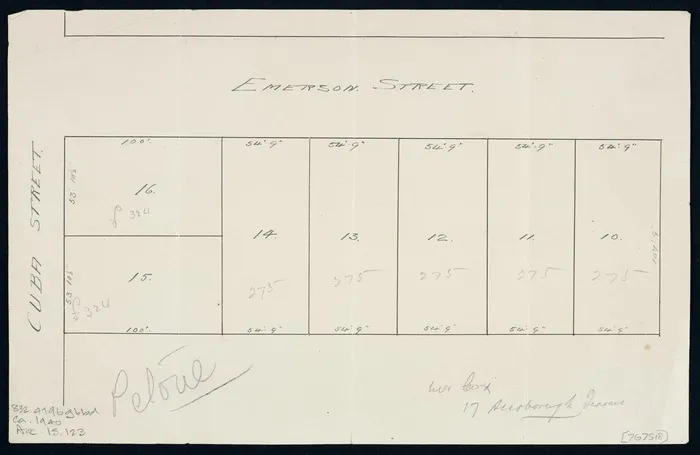 EMERSON STREET.
CUBA STREET.
100'
54' 9"
54' 9"
54' 9"
54' 9"
54' 9"
53' 10½"
16.
324
14.
13.
12.
11.
10.
53' 10½"
15.
324
275
275
275
275
275
100'
54' 9"
54' 9"
54' 9"
54' 9"
54' 9"
Petone
17
832.4796gbbd
Ca. 1940
Acc 15,123
[76751R]